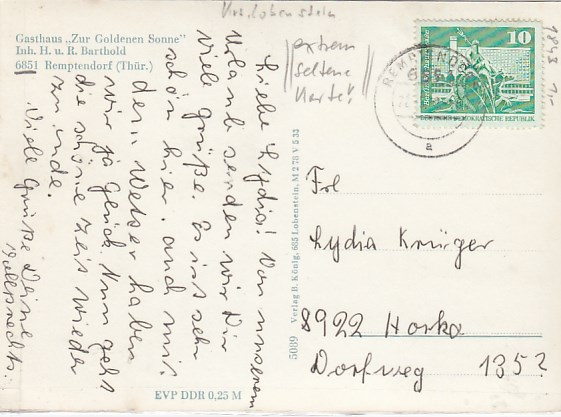 Gasthaus „Zur Goldenen Sonne"
Inh. H. u. R. Barthold
6851 Remptendorf (Thür.)
extrem
seltene
Karte!
10
DEUTSCHE DEMOKRATISCHE REPUBLIK
REMPTENDORF
a
Liebe Lydia! Von unserem
Urlaub senden wir Dir
viele Grüße. Es ist sehr
schön hier. und mit
den Wetter haben
wir ja Glück. Nun geht
die schöne Zeit wieder
zu ende.
Viele Grüße Deine
5089 Verlag B. König, 685 Lobenstein, M 278 V 5 33
EVP DDR 0,25 M
Frl
Lydia Krüger
8922 Horka
Dorfweg 135